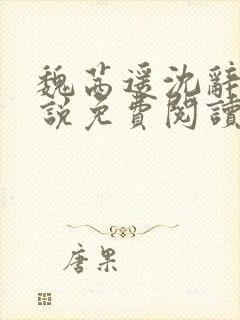 魏芮瑶沈辭
說免費閱讀
唐果